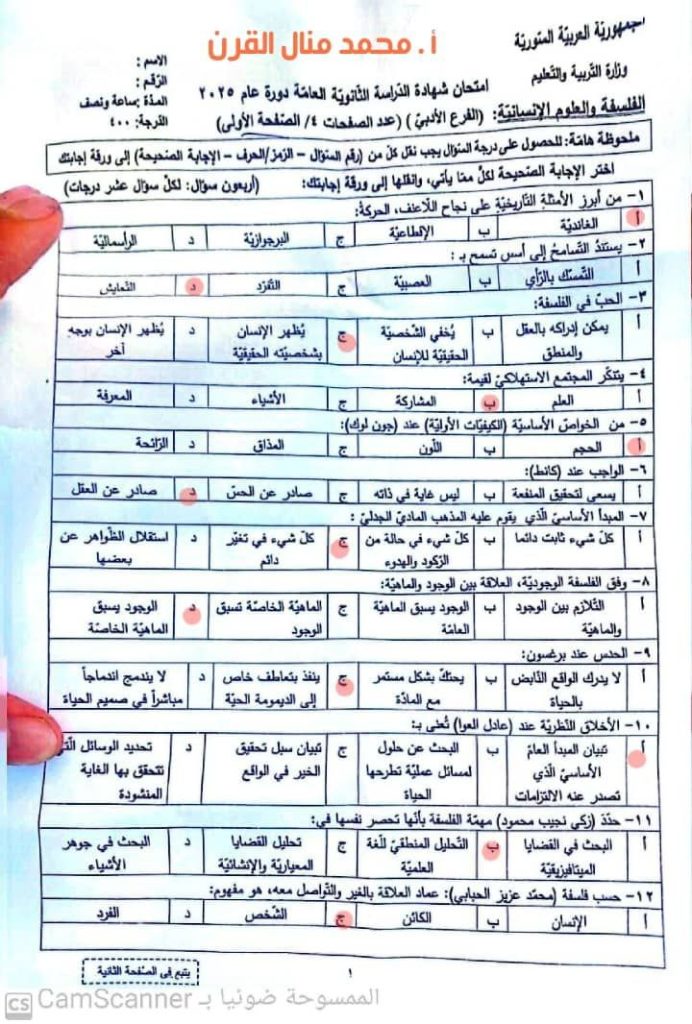 أ. محمد منال القرن
الجمهوريّة العربيّة السّوريّة
وزارة التّربية والتّعليم
الاسم :
الرّقم :
المدّة :ساعة ونصف
الدّرجة: ٤٠٠
امتحان شهادة الدّراسة الثّانويّة العامّة دورة عام ٢٠٢٥
الفلسفة والعلوم الإنسانيّة: (الفرع الأدبيّ) (عدد الصفحات ٤/ الصّفحة الأولى)
ملحوظة هامّة: للحصول على درجة السّؤال يجب نقل كلّ من (رقم السّؤال – الرّمز/الحرف – الإجابة الصّحيحة) إلى ورقة إجابتك
اختر الإجابة الصّحيحة لكلّ ممّا يأتي، وانقلها إلى ورقة إجابتك: (أربعون سؤال: لكلّ سؤال عشر درجات)
١- من أبرز الأمثلة التّاريخيّة على نجاح اللّاعنف، الحركة:
أ الغانديّة ب الإقطاعيّة ج البرجوازيّة د الرأسماليّة
٢- يستندُ التّسامحُ إلى أسس تسمح بـ :
أ التّمسّك بالرّأي ب العصبيّة ج التّفرّد د التّعايش
٣- الحبّ في الفلسفة:
أ يمكن إدراكه بالعقل والمنطق ب يُخفي الشّخصيّة الحقيقيّة للإنسان ج يُظهر الإنسان بشخصيّته الحقيقيّة د يُظهر الإنسان بوجه آخر
٤- يتنكّر المجتمع الاستهلاكيّ لقيمة:
أ العلم ب المشاركة ج الأشياء د المعرفة
٥- من الخواصّ الأساسيّة (الكيفيّات الأوليّة) عند (جون لوك):
أ الحجم ب اللّون ج المذاق د الرّائحة
٦- الواجب عند (كانط):
أ يسعى لتحقيق المنفعة ب ليس غاية في ذاته ج صادر عن الحسّ د صادر عن العقل
٧- المبدأ الأساسيّ الّذي يقوم عليه المذهب الماديّ الجدليّ :
أ كلّ شيء ثابت دائما ب كلّ شيء في حالة من الرّكود والهدوء ج كلّ شيء في تغيّر دائم د استقلال الظّواهر عن بعضها
٨- وفق الفلسفة الوجوديّة، العلاقة بين الوجود والماهيّة:
أ التّلازم بين الوجود والماهيّة ب الوجود يسبق الماهيّة العامّة ج الماهيّة الخاصّة تسبق الوجود د الوجود يسبق الماهيّة الخاصّة
٩- الحدس عند برغسون:
أ لا يدرك الواقع النّابض بالحياة ب يحتكّ بشكل مستمر مع المادّة ج ينفذ بتعاطف خاص إلى الديمومة الحيّة د لا يندمج اندماجاً مباشراً في صميم الحياة
١٠- الأخلاق النّظريّة عند (عادل العوا) تُعنى بـ:
أ تبيان المبدأ العامّ الأساسيّ الّذي تصدر عنه الالتزامات ب البحث عن حلول لمسائل عمليّة تطرحها الحياة ج تبيان سبل تحقيق الخير في الواقع د تحديد الوسائل الّتي تتحقق بها الغاية المنشودة
١١- حدّد (زكي نجيب محمود) مهمّة الفلسفة بأنّها تحصر نفسها في:
أ البحث في القضايا الميتافيزيقيّة ب التّحليل المنطقيّ للّغة العلميّة ج تحليل القضايا المعياريّة والإنشائيّة د البحث في جوهر الأشياء
١٢- حسب فلسفة (محمّد عزيز الحبابي): عماد العلاقة بالغير والتّواصل معه، هو مفهوم:
أ الإنسان ب الكائن ج الشّخص د الفرد
١
يتبع في الصّفحة الثّانية
CS CamScanner الممسوحة ضوئيا بـ